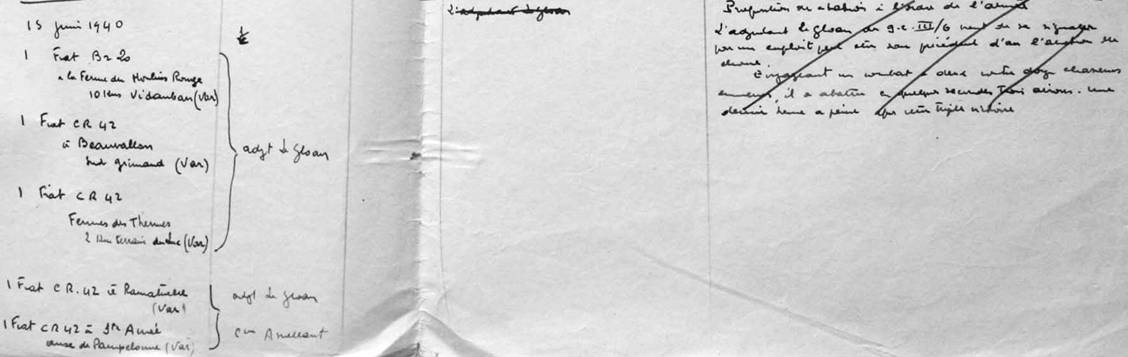 15 juin 1940
1 Fiat Br 20
a la Ferme du Moulin Rouge
10 kms Vidauban (Var)
1 Fiat CR 42
à Beauvallon
sud Grimaud (Var)
1 Fiat CR 42
Fermes des Thermes
2 km terrain du Luc (Var)
adjt Le Gloan
1 Fiat CR. 42 à Ramatuelle
(Var)
1 Fiat CR 42 à Ste Année
anse de Pampelonne (Var)
adjt Le Gloan
L'adjudant Le Gloan
Proposition de citation à l'ordre de l'armée
L'adjudant Le Gloan du g.c. III/6 vient de se signaler
par un exploit sans précédent d'un l'aviation de
chasse.
Engageant un combat à deux contre douze chasseurs
ennemis, il a abattu en quelques secondes trois avions. Une
demie heure a peine après cette triple victoire